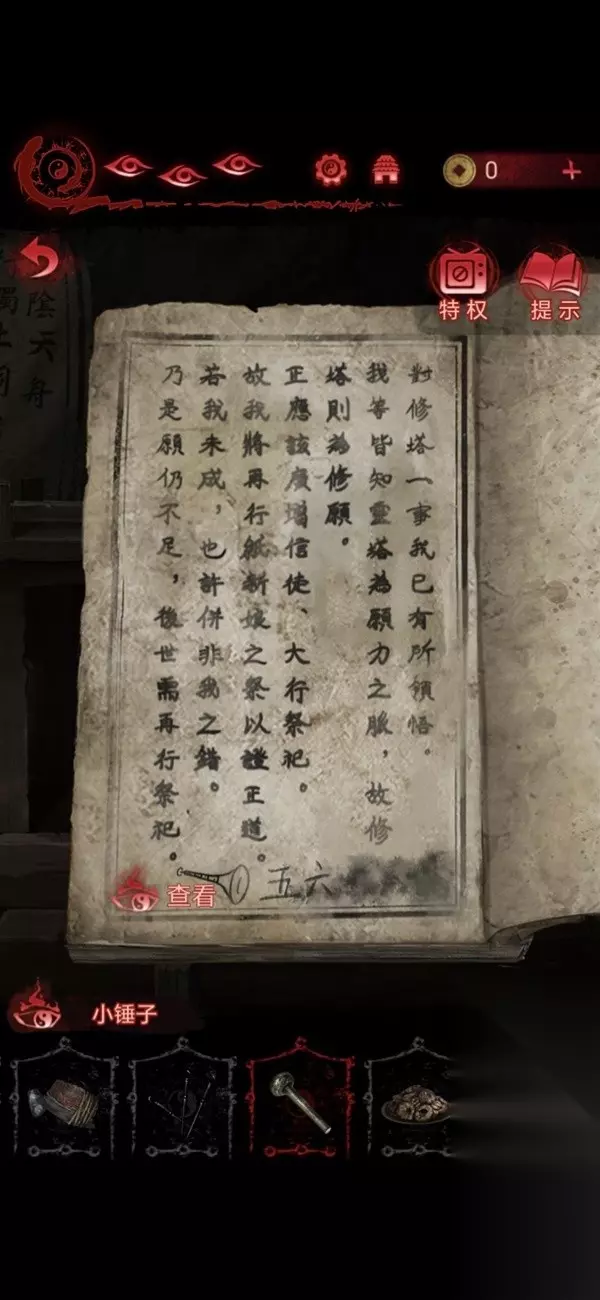 0
特权
提示
對修塔一事我已有所領悟。
我等皆知靈塔為願力之脈，故修
塔則為修願。
正應該廣增信徒、大行祭祀。
故我將再行紙新娘之祭以證正道。
若我未成，也許併非我之錯。
乃是願仍不足，後世需再行祭祀。
① 五六
查看
小锤子
陰天舟